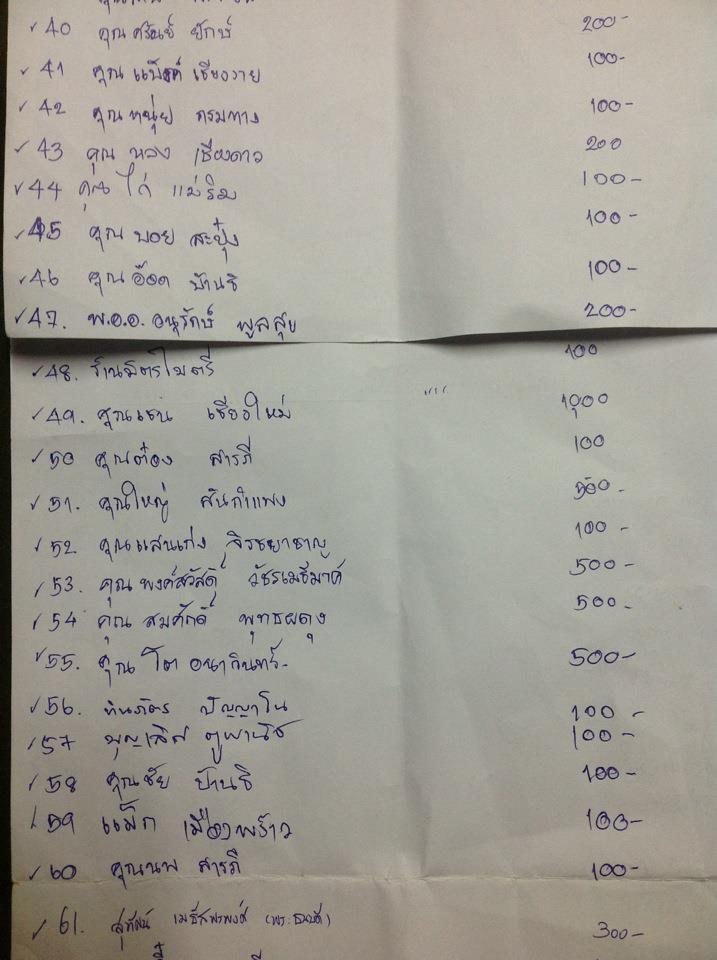 ✓ 40 คุณ ศรัณย์ ยักษ์ 200-
✓ 41 คุณ แบ็งค์ เชียงราย 100-
✓ 42 คุณ หนุ่ย กรมทาง 100-
✓ 43 คุณ หลง เชียงดาว 200
✓ 44 คุณ ไก่ แม่ริม 100-
✓ 45 คุณ บอย สะปุ๋ง 100-
✓ 46 คุณ อ๊อด บ้านธิ 100-
✓ 47. พ.อ.อ. อนุรักษ์ พูลสุข 200-
✓ 48. ร้านมิตรไมตรี 100
✓ 49. คุณเชน เชียงใหม่ 1,000
✓ 50 คุณต๋อง สารภี 100
✓ 51. คุณใหญ่ สันกำแพง 500-
✓ 52 คุณแสนเก่ง 100-
✓ 53. คุณ พงค์สวัสดิ์ 500-
✓ 54 คุณ สมศักดิ์ พุทธผดุง 500-
✓ 55. คุณ โต อนาคินทร์- 500-
✓ 56. ปัญญาโน 100-
✓ 57 บุญเลิศ ตูพานิช 100-
✓ 58 คุณชัย บ้านธิ 100-
✓ 59 แม็ก เมืองพร้าว 100-
✓ 60 คุณนพ สารภี 100-
✓ 61. สุทัศน์ 300-